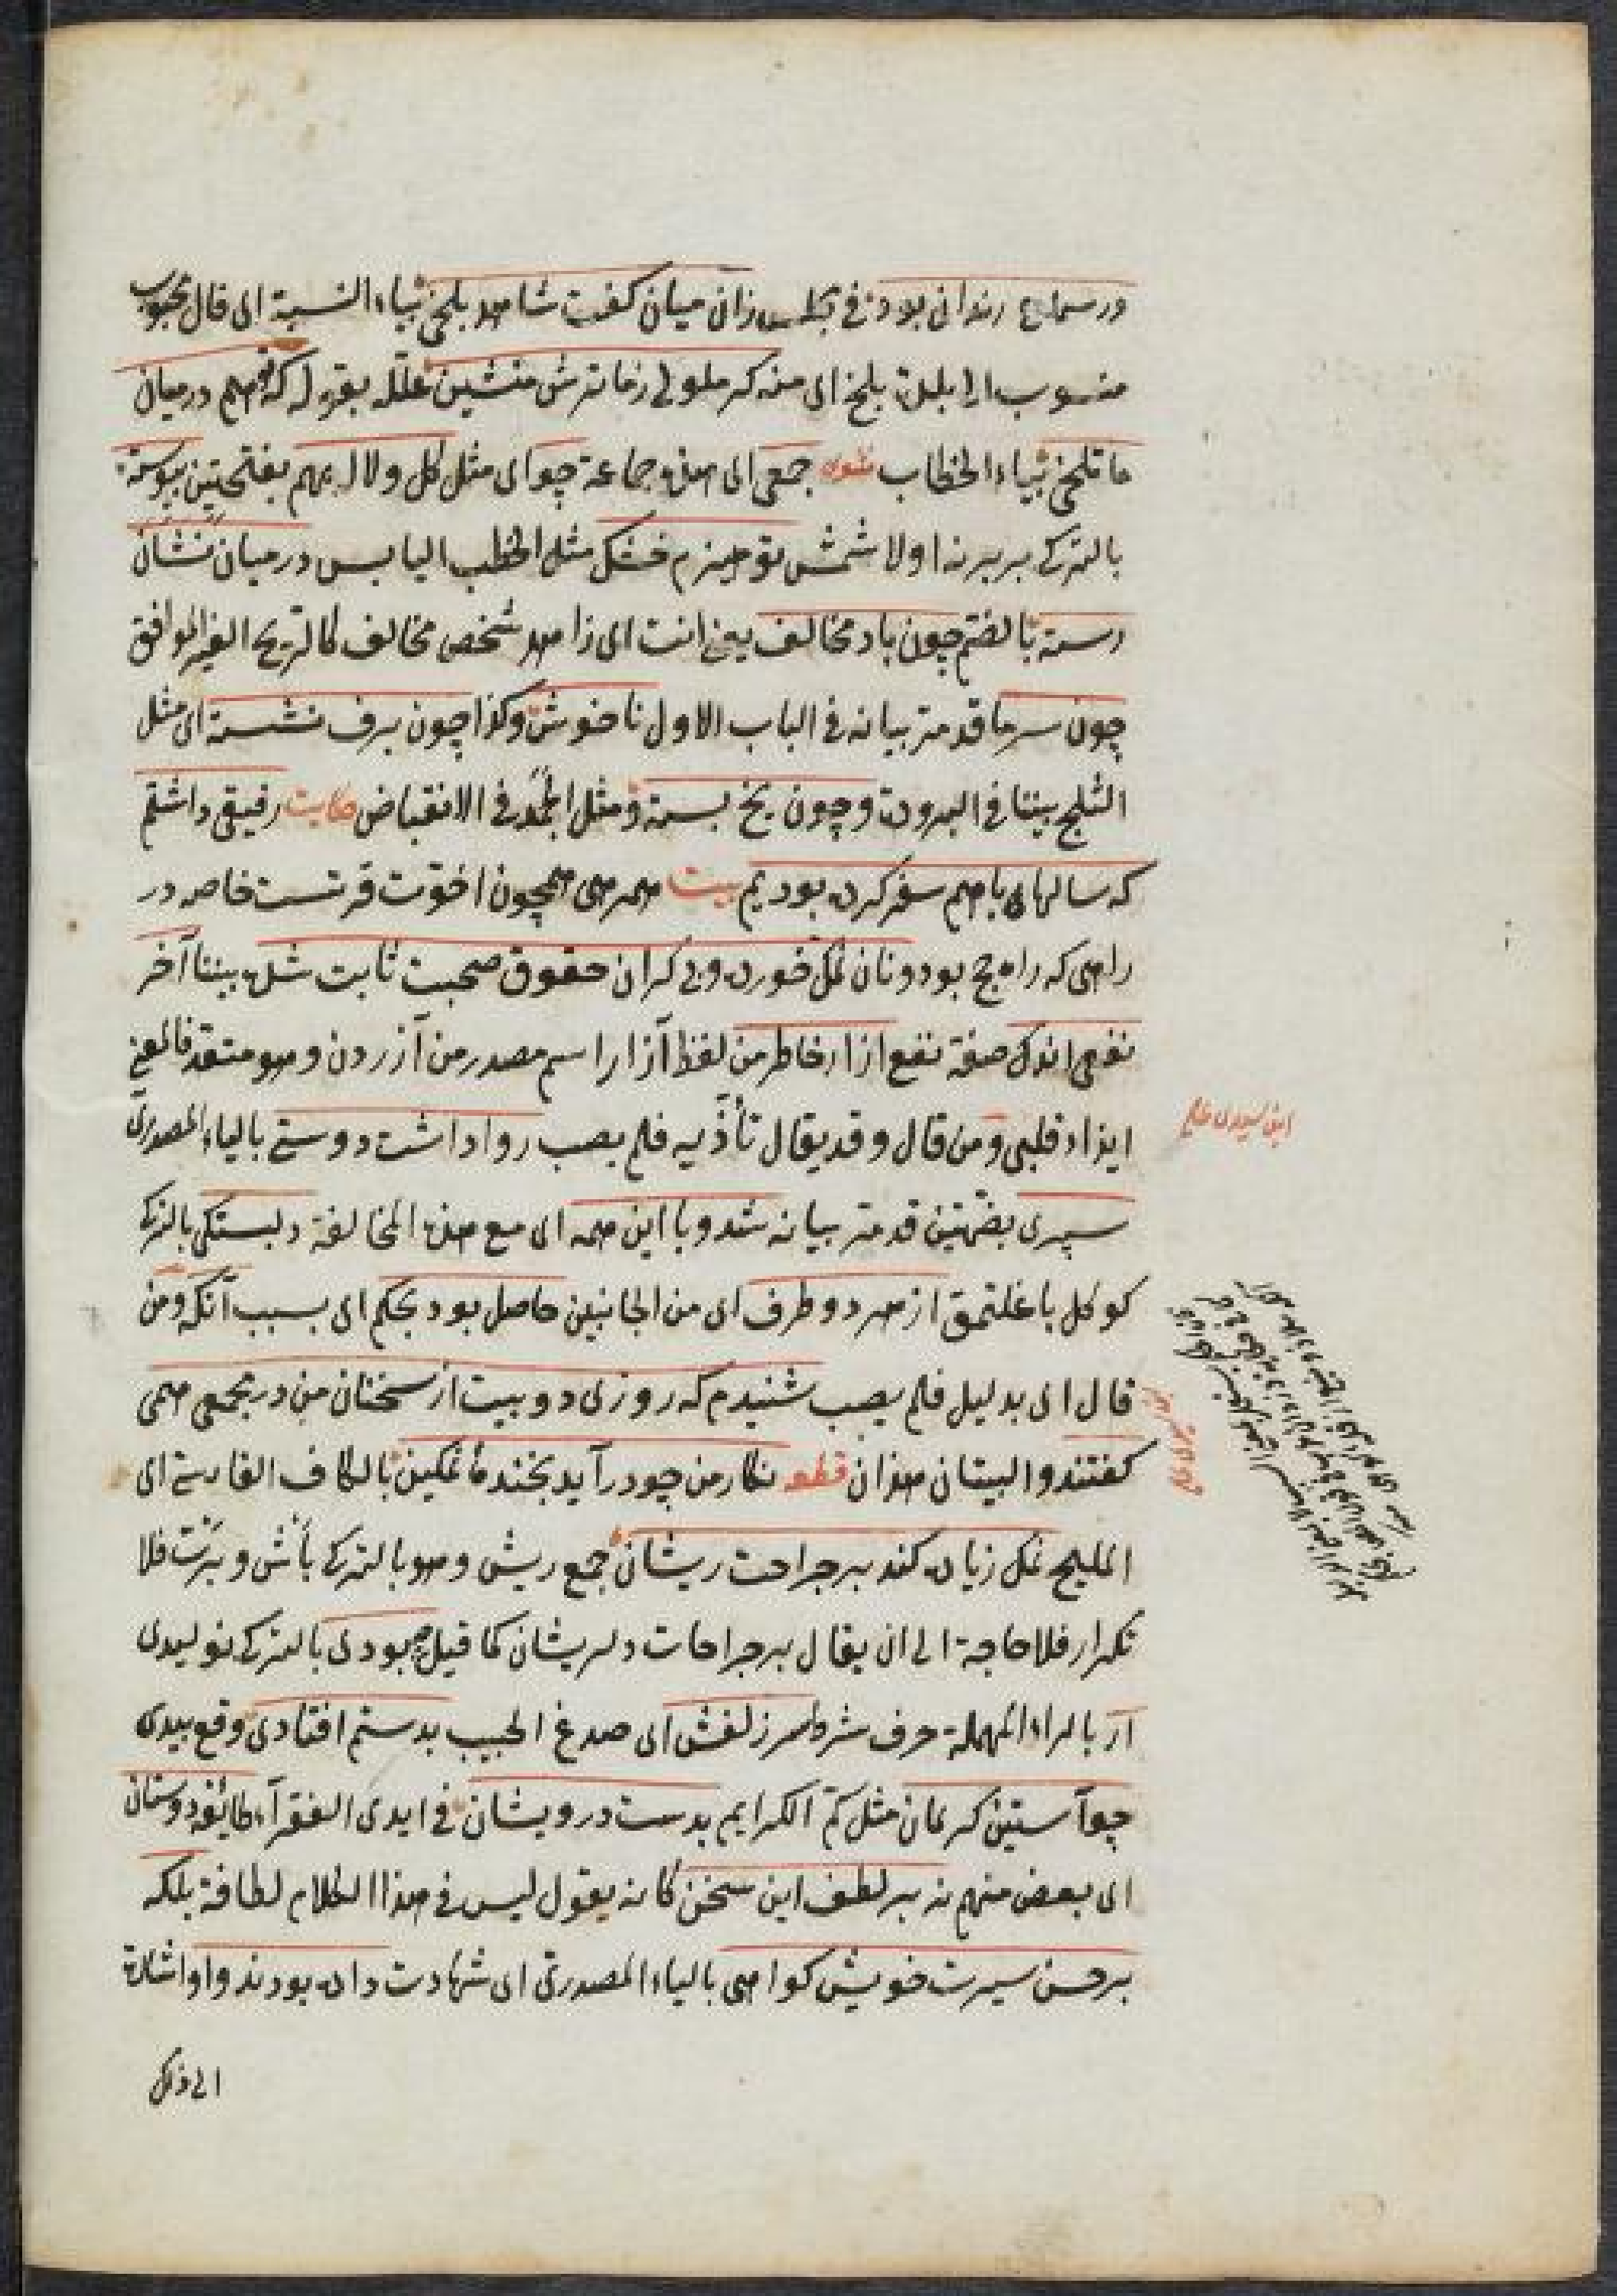 در سماع رندانی بود فی مجلس زان میان کفت شاهد بلخی بیاء النسبة ای قال محبوب
منسوب الی بلدة بلخ ای منه کر ملولی زما ترش منشین علله بقوله که تو هم در میان
ما تلخی بیاء الخطاب مثنوی جمعی ای هذه جماعة چو ای مثل کل ولاله بهم بفتحتین پیوسته
بالترکی بربرنه اولاشمش تو هیزم خشک مثل الحطب الیابس در میان نشان
رسته بالضم چون باد مخالف یعنی انت ای زاهد شخص مخالف کالریح الغیر الموافق
چون سرما قد مر بیانه فی الباب الاول ناخوش وکذا چون برف نشسته ای مثل
الثلج بیننا فی البرودة وچون یخ بسته ومثل الجمد فی الانقباض حکایت رفیقی داشتم
که سالهای باهم سفر کرده بودیم بیت همرهی همچون اخوت قربتست خاصه در
راهی که راه حج بود ونان نمک خورده وبی کران حقوق صحبت ثابت شده بیننا آخر
نفعی اندک صفة نفع ازار خاطر من لفظ آزار اسم مصدر من آزردن وهو متعد فالمعنی
ایذاء قلبی ومن قال وقد یقال تأذیه فلم یصب روا داشت دوستی بالیاء المصدری
سپری بضمتین قد مر بیانه شد وبا این همه ای مع هذه المخالفة دلبستکی بالترکی
کوکل باغلتمق از هر دو طرف ای من الجانبین حاصل بود بحکم ای بسبب آنکه ومن
قال ای بدلیل فلم یصب شنیدم که روزی دو بیت از سخنان من در مجمعی همی
کفتند والبیتان هذان قطعه نکار من چو در آید بخنده نمکین بالکاف الفارسیة ای
الملیح نمک زیاده کند بر جراحت ریشان جمع ریش وهو بالترکی باش وبرت فلا
تکرار فلا حاجة الی ان یقال بر جراحات دلریشان کما قیل چه بودی بالترکی نولیدی
ار بالراء المهملة حرف شرط سر زلفش ای صدغ الحبیب بدستم افتادی وقع بیدی
چو آستین کریمان مثل کم الکرایم بدست درویشان فی ایدی الفقرآء طائفه دوستان
ای بعض منهم نه بر لطف این سخن کانه یقول لیس فی هذا الکلام لطافة بلکه
بر حسن سیرت خویش کواهی بالیاء المصدری ای شهادت داده بودند واو اشارة
الی ذلک